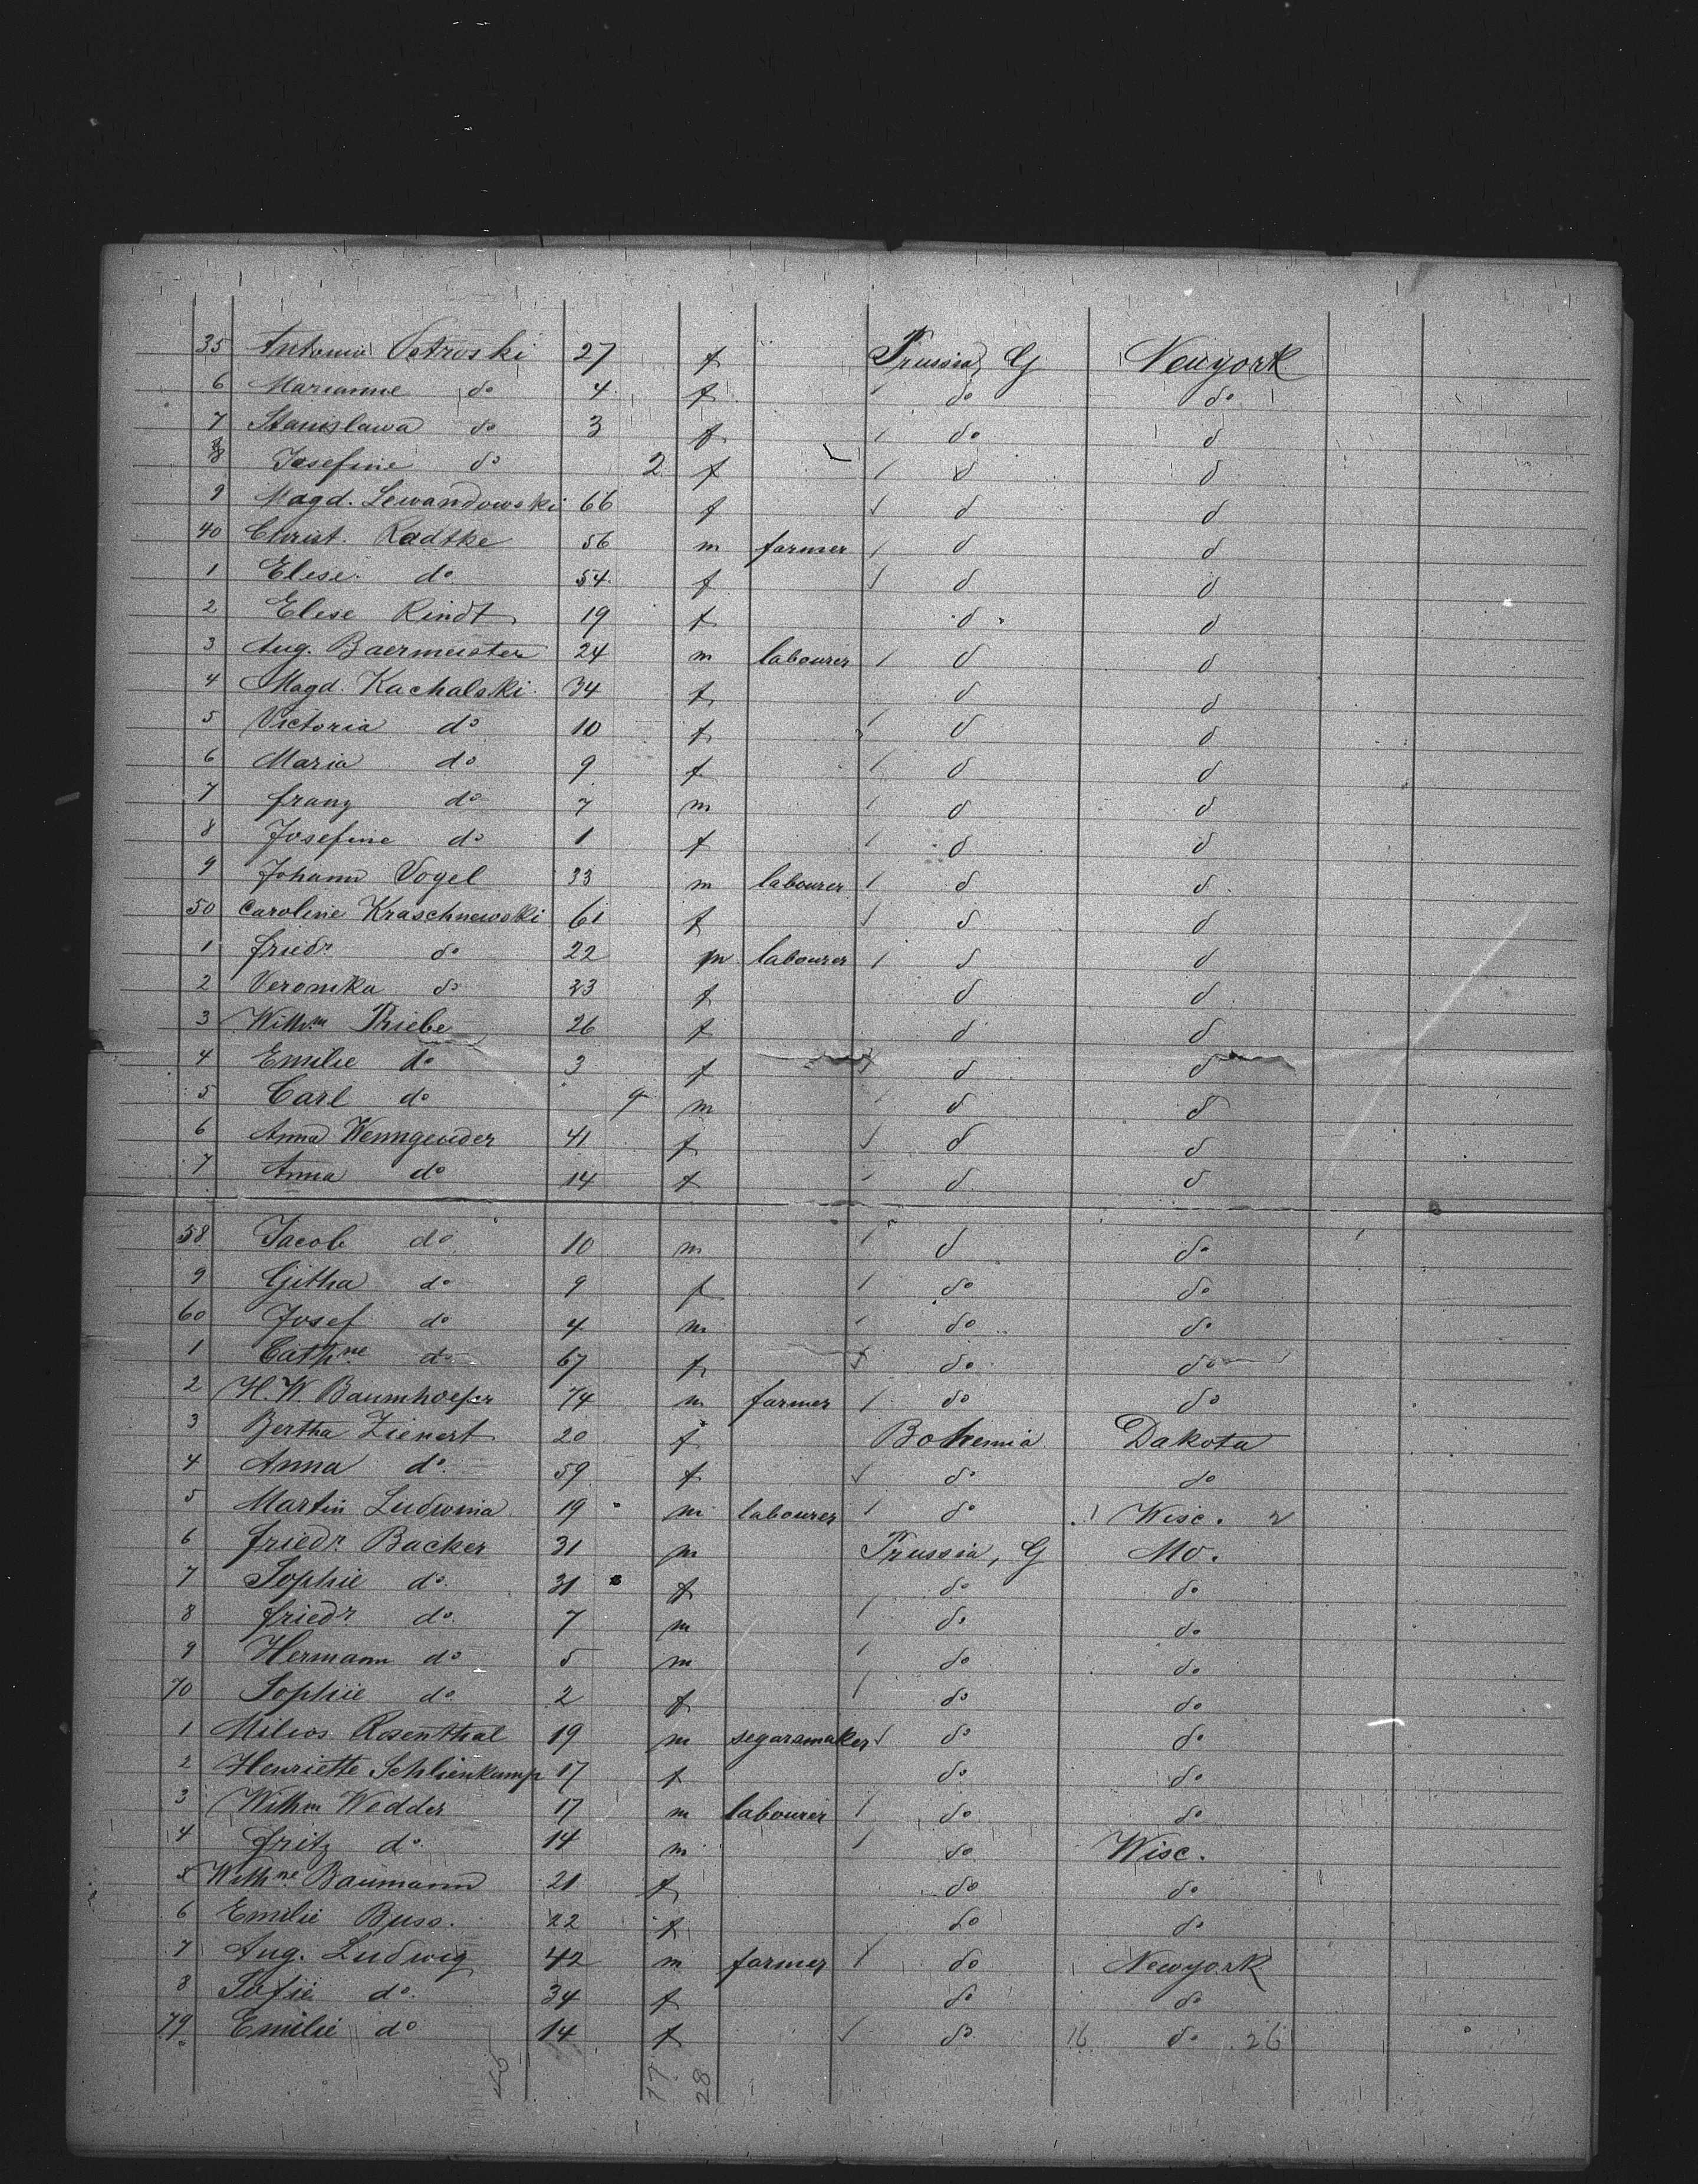 35 Antonie Petroski 27 f Prussia, G Newyork
6 Marianne do 4 f do do
7 Stanislawa do 3 f do d
8 Josefine do 2 f d d
9 Magd. Lewandowski 66 f d d
40 Christ. Radtke 56 m farmer d d
1 Elise do 54 f d d
2 Elese Rindt 19 f d d
3 Aug. Baermeister 24 m labourer d d
4 Magd. Kachalski 34 f d d
5 Victoria do 10 f d d
6 Maria do 9 f d d
7 franz do 7 m d d
8 Josefine do 1 f d d
9 Johann Vogel 33 m labourer d d
50 Caroline Kraschnewski 61 f d d
1 friedr. do 22 m labourer d d
2 Veronika do 23 f d d
3 Wilhm Priebe 26 f d d
4 Emilie do 3 f d d
5 Carl do 9 m d d
6 Anna Wenngender 41 f d d
7 Anna do 14 f d d
58 Jacob do 10 m d do
9 Githa do 9 f do do
60 Josef do 4 m do do
1 Cathne do 67 f do do
2 H. W. Baumhoefer 74 m farmer do do
3 Bertha Zienert 20 f Bohemia Dakota
4 Anna do 59 f do do
5 Martin Ludwina 19 m labourer do Wisc. 2
6 friedr. Backer 31 m Prussia, G Mo.
7 Sophie do 31 f do do
8 friedr do 7 m do do
9 Hermann do 5 m do do
70 Sophie do 2 f do do
1 Rosenthal 19 m segarsmaker do do
2 Henriette Schlienkamp 17 f do do
3 Wilhm Wedder 17 m labourer do do
4 fritz do 14 m do Wisc.
5 Wilhne Baumann 21 f do do
6 Emilie Buss. 22 f do do
7 Aug. Ludwig 42 m farmer do Newyork
8 Sofie do 34 f do do
79 Emilie do 14 f do 16 do 26
17 28